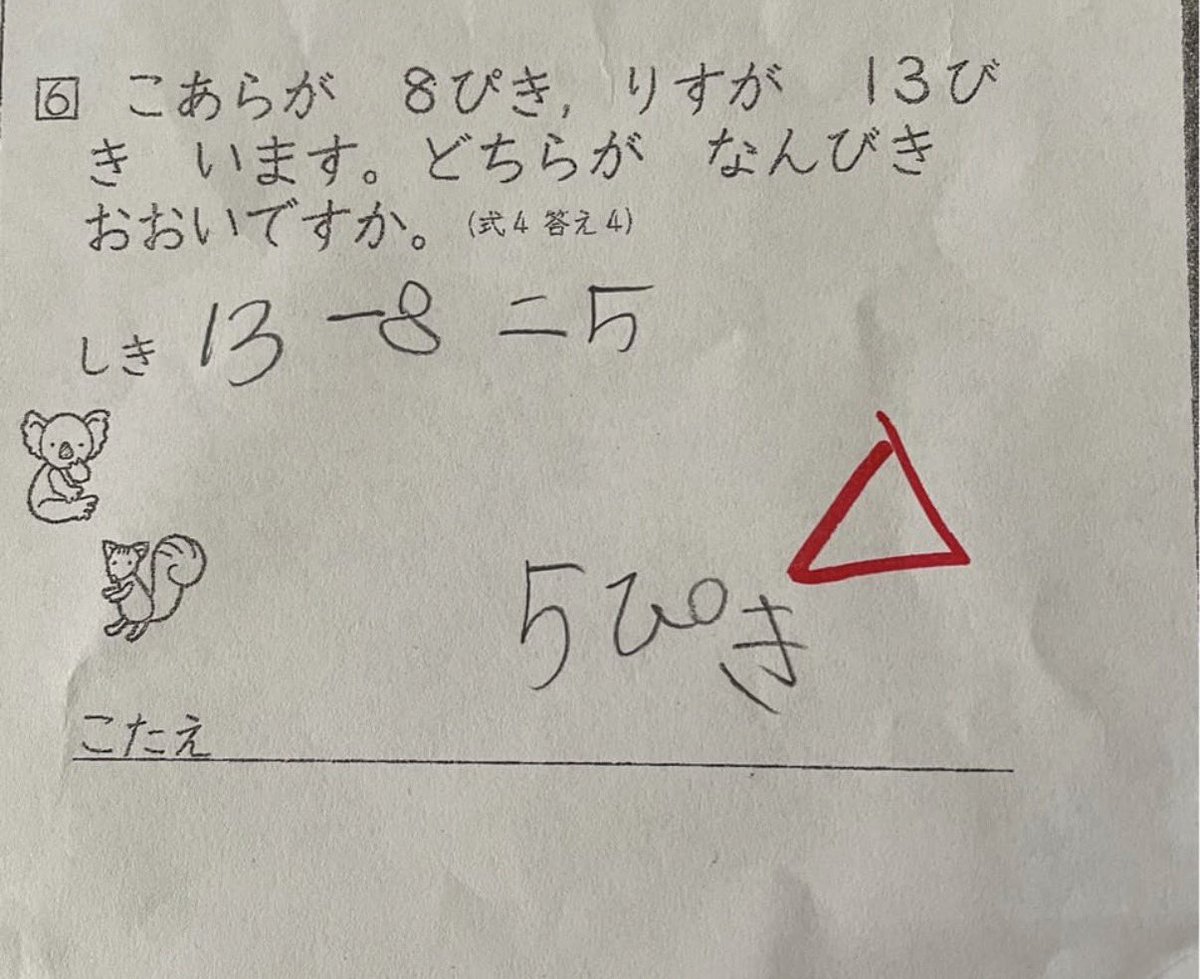 6 こあらが 8ぴき, りすが 13び
き います。どちらが なんびき
おおいですか。(式4 答え4)
しき 13-8=5
5ぴき
こたえ